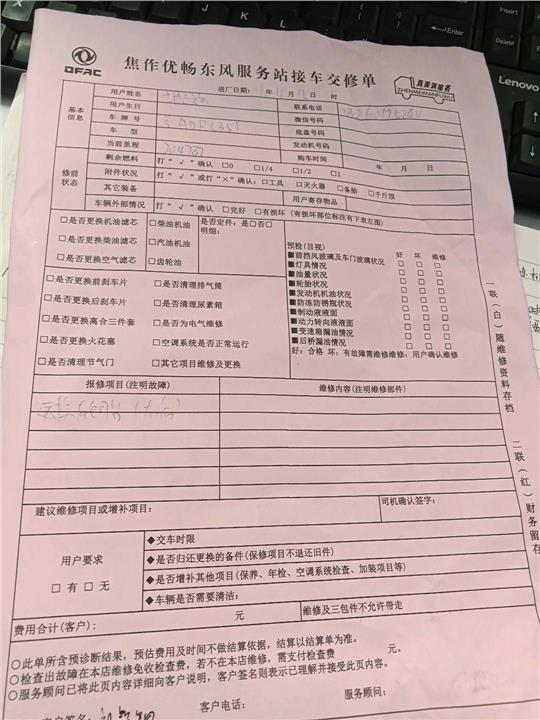 DFAC
焦作优畅东风服务站接车交修单
真美满服务
ZHENMEIMANFUWU
Lenovo
进厂日期: 年 月 日 时
基本信息
用户姓名 联系电话
用户生日 微信号码
车牌号 底盘号码
车型 发动机号码
当前里程 购车时间 年 月 日
修前状态
剩余燃料 打“√”确认 □0 □1/4 □1/2 □1
附件状况 打“√”或打“×”确认:□工具 □灭火器 □备胎 □千斤顶
其它装备 用户寄存物品
车辆外部情况 打“√”确认 □完好 □有损坏(有损坏部位标注有下表左图)
□是否更换机油滤芯 □柴油机油 是否定件:是□否□
□是否更换柴油滤芯 □汽油机油 明细:
□是否更换空气滤芯 □齿轮油
□是否更换前刹车片 □是否清理排气筒
□是否更换后刹车片 □是否清理尿素箱
□是否更换离合三件套 □是否为电气维修
□是否更换火花塞 □空调系统是否正常运行
□是否清理节气门 □其它项目维修及更换
预检(目视) 好 坏 维修
■前挡风玻璃及车门玻璃状况
■灯具情况
■油量状况
■轮胎状况
■发动机机油状况
■防冻防锈瓶状况
■制动液液面
■动力转向液液面
■变速箱漏油情况
■后桥漏油情况
好:合格 坏:有故障需维修维修:用户确认维修
报修项目(注明故障) 维修内容(注明维修部件)
建议维修项目或增补项目: 司机确认签字:
用户要求
□有 □无
◆交车时限
◆是否归还更换的备件(保修项目不退还旧件)
◆是否增补其他项目(保养、年检、空调系统检查、加装项目等)
◆车辆是否需要清洁:
费用合计(客户): 元 维修及三包件不允许带走
○此单所含预诊断结果,预估费用及时间不做结算依据,结算以结算单为准。
○检查出故障在本店维修免收检查费,若不在本店维修,需支付检查费 元。
○服务顾问已将此页内容详细向客户说明,客户签名则表示已理解并接受此页内容。
客户签名: 客户电话: 服务顾问:
一联(白)随维修资料存档
二联(红)财务留存